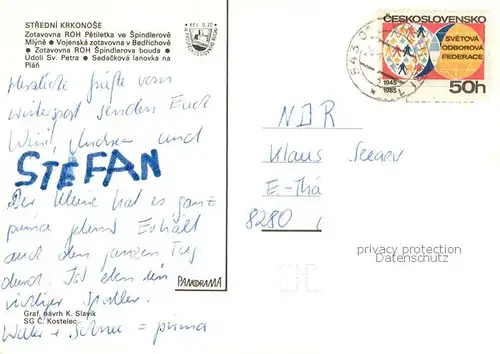 STŘEDNÍ KRKONOŠE
Zotavovna ROH Pětiletka ve Špindlerově
Mlýně • Vojenská zotavovna v Bedřichově
• Zotavovna ROH Špindlerova bouda •
Údolí Sv. Petra • Sedačková lanovka na
Pláň
Kčs 0,20
ČESKOSLOVENSKO
SVĚTOVÁ
ODBOROVÁ
FEDERACE
1945
1985
50h
543 0
Herzliche Grüße vom
Wintersport senden Euch
und
STEFAN
Der Kleine hat es ganz
prima
auch den ganzen Tag
durch. Ist eben ein
richtiger Sportler.
Wetter + Schnee = prima
NDR
Klaus
E.-Thä
8280
privacy protection
Oldthing.de
PANORAMA
Graf. návrh K. Slavík
SG Č. Kostelec